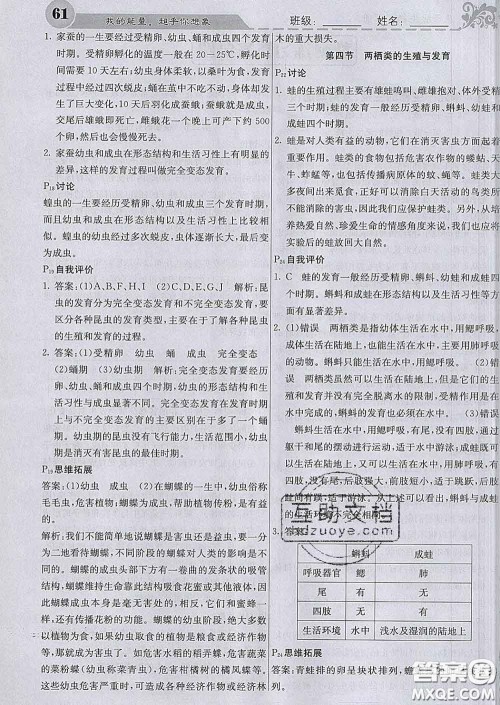 61
我的能量,超乎你想象
班级:
姓名:
1. 家蚕的一生要经过受精卵、幼虫、蛹和成虫四个发育时
期。家蚕受精卵孵化的温度一般在20~25℃,孵化时
间需要10天左右;幼虫身体柔软,以桑叶为食,发育
过程中经过四次蜕皮;蛹在茧中不吃不动,身体却发
生了巨大变化,10天后羽化成蚕蛾;蚕蛾破茧成虫,
交尾后雄蛾即死亡,雌蛾花一个晚上可产下约500
个卵,然后也会慢慢死去。
2. 家蚕幼虫和成虫在形态结构和生活习性上有明显的
差异,这样的发育过程叫做完全变态发育。
P₁₈讨论
蝗虫的一生要经历受精卵、幼虫和成虫三个发育时期,
而且幼虫和成虫在形态结构以及生活习性上比较相
似。蝗虫的幼虫经过多次蜕皮,虫体逐渐长大,最后变
为成虫。
P₁₉自我评价
1. 答案:(1)A、B、F、H、I (2)C、D、E、G、J 解析:昆
虫的发育分为完全变态发育和不完全变态发育,要区
分各种昆虫的发育类型,主要在于了解各种昆虫的生
的生殖和发育的过程。
2. 答案:(1)受精卵 幼虫 蛹 成虫 完全变态
(2)蛹期 (3)幼虫期 解析:完全变态发育要经历受精
卵、幼虫、蛹和成虫四个时期,幼虫的形态结构和生
活习性与成虫有显著的不同。完全变态发育在发育时期
上与不完全变态发育的主要区别在于多了一个蛹
期。幼虫期的昆虫没有飞行能力,幼虫期是危害农作
物最严重的时期。
P₁₉思维拓展
答案:(1)幼虫 成虫 (2)在蝴蝶的一生中,幼虫俗称
毛毛虫,危害植物;蝴蝶变为成虫,帮助植物传粉,是有
益的。
解析:我们不能简单地说蝴蝶是害虫还是益虫,要一分
为二地看待蝴蝶,不同阶段的蝴蝶对人类的影响是不
同的。蝴蝶的成虫头部下方有一卷曲的条状的吸管
状结构,蝴蝶维持生命靠此结构来吸食花蜜或其他液
体,因此蝴蝶成虫是毫无害处的,相反,它们和蜜蜂一
样,还有传播花粉的功能。大多数蝴蝶的幼虫,多数以
以植物为食,如果幼虫取食的植物是粮食或经济作物
等,那就成为危害人类利益的害虫了,如危害蔬菜
的菜粉蝶(幼虫俗称菜青虫)、危害柑橘的柑橘凤蝶等。
这些幼虫危害严重时,可造成许多经济作物或经济林
木的重大损失。
第四节 两栖类的生殖与发育
P₂₂讨论
1. 蛙的生殖过程主要有雄蛙鸣叫、雌雄抱对、体外受精
三个时期;蛙的发育一般经历受精卵、蝌蚪、幼蛙和成
四个时期。
2. 蛙是对人类有益的动物,它们在消灭害虫方面发挥
着重要作用。蛙类的食物包括危害农作物的螺类、蜗
牛、蚱蜢等,也包括传播病原体的蚊、蝇等。蛙类大
多夜间出来觅食,正好可以消灭白天活动的鸟类所不
能消除的害虫,因此,我们应该保护蛙类。另外,从培
养亲近自然、珍爱生命的情感角度来说,我们也应该
将蛙放回大自然。
P₂₄自我评价
1. C 蛙的发育一般经历受精卵、蝌蚪、幼蛙和成蛙四
个时期。且蝌蚪和成蛙在形态结构和生活习性等方
面有显著差异。
2. (1)错误 两栖类是指幼体生活在水中,用鳃呼吸;成
体大多生活在陆地上,也能生活在水中,主要用肺呼吸
的动物。蝌蚪只能生活在水中,用鳃呼吸。 (2)错误
两栖类虽然可以生活在陆地上,但是两栖类的生
殖和发育并没有完全脱离水的限制,受精卵的发
育在水中完成,蝌蚪的生活也在水中。 (3)错误
蝌蚪生活在水中,用鳃呼吸,有尾,无四肢,通过
躯干和尾的摆动来游泳,适于水中游泳;成蛙既可生
活在陆地上,也可生活在水中,用肺呼吸,无尾,有
四肢,前肢短小,后肢强大,前肢适于支撑,后肢适于跳跃,
趾间有蹼,适于游泳。从以上可以看出,蝌蚪和成蛙
的生活环境不完全相同。
3. 答案:
蝌蚪 成蛙
呼吸器官 鳃 肺
尾 有 无
四肢 无 有
生活环境 水中 浅水及湿润的陆地上
P₂₄思维拓展
答案:青蛙排的卵呈块状排列,蟾
互助文档
hdzuoye.com
答案圈
MXQE.COM